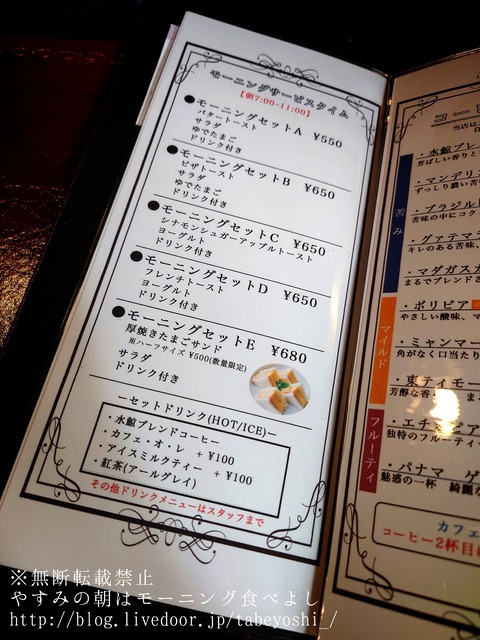 モーニングサービスタイム
【朝7:00-11:00】
●モーニングセットA ¥550
バタートースト
サラダ
ゆでたまご
ドリンク付き
●モーニングセットB ¥650
ピザトースト
サラダ
ゆでたまご
ドリンク付き
●モーニングセットC ¥650
シナモンシュガーアップルトースト
ヨーグルト
ドリンク付き
●モーニングセットD ¥650
フレンチトースト
ヨーグルト
ドリンク付き
●モーニングセットE ¥680
厚焼きたまごサンド
※ハーフサイズ ¥500(数量限定)
サラダ
ドリンク付き
ーセットドリンク(HOT/ICE)ー
・水鯨ブレンドコーヒー
・カフェ・オ・レ +¥100
・アイスミルクティー +¥100
・紅茶(アールグレイ)
その他ドリンクメニューはスタッフまで
コーヒ
当店は
・水鯨ブレ
芳ばしい香りと
苦み
・マンデリ
ずっしり濃い苦
・ブラジル
苦味の中にコク
・グァテマ
キレのある苦味、
・マダガスカ
まるでブレンドさ
マイルド
・ボリビア
やさしい酸味、マ
・ミャンマー
角がなく口当たり
・東ティモー
芳醇な香
フルーティ
・エチ
独特のフルーティ
・パナマ ゲ
魅惑の一杯 綺麗
カフェ
コーヒー2杯目
※無断転載禁止
やすみの朝はモーニング食べよし
http://blog.livedoor.jp/tabeyoshi_/